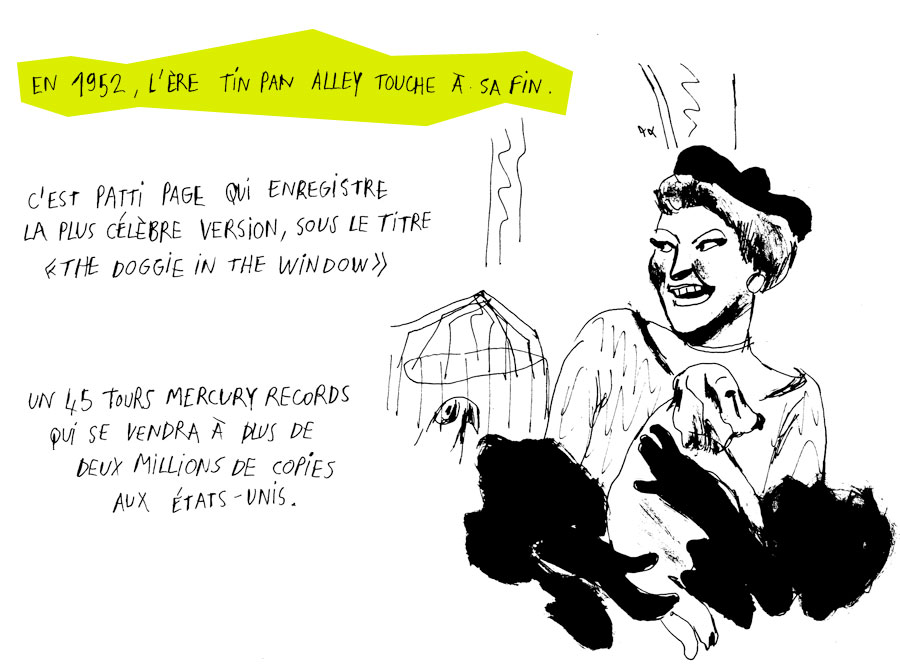 EN 1952, L'ÈRE TIN PAN ALLEY TOUCHE À SA FIN.
C'EST PATTI PAGE QUI ENREGISTRE
LA PLUS CÉLÈBRE VERSION, SOUS LE TITRE
«THE DOGGIE IN THE WINDOW»
UN 45 TOURS MERCURY RECORDS
QUI SE VENDRA À PLUS DE
DEUX MILLIONS DE COPIES
AUX ÉTATS-UNIS.